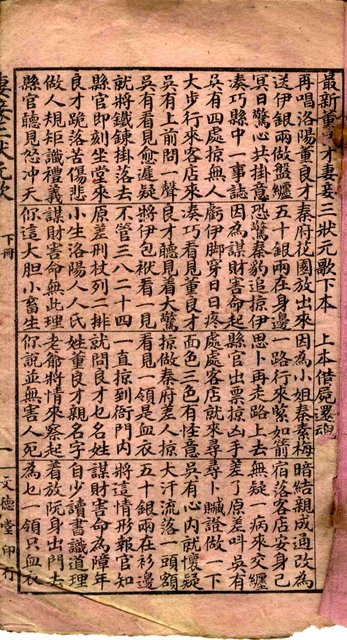 最新董良才妻妾三狀元歌下本 上本借屍還魂
再唱洛陽董良才秦府花園放出來因為小姐秦素梅暗結親成通改為
送伊銀兩做盤纏五十銀兩在身邊一路行來緊如箭宿落客店安身己
冥日驚心共掛意恐驚秦豹追掠伊思卜再走路上去無疑一病來交纏
湊巧縣中一事誌因為謀財害命起縣官出票掠凶手差了原差叫吳有
吳有四處掠無人虧伊脚穿日日疼處處客店就來尋尋卜贓證做一下
大步行來客店來湊巧看見董良才面色三色有怪意吳有心內就懷疑
吳有上前問一聲良才聽見着大驚掠做秦府差人掠大汗流落一頭額
吳有看見愈遲疑將伊包袱看一見看見一領是血衣五十銀兩在衫邊
就將鐵鍊掛落去不管三八二十四一直掠到衙門內將這情形報官知
縣官即刻坐堂來原差刑杖列二排就問良才乜名姓謀財害命為障年
良才跪落苦傷悲小生洛陽人人氏姓董良才親名字自少讀書識道理
做人規矩識禮義謀財害命無此理老爺將情來察起着放阮身出門去
縣官聽見怨冲天你這大胆小畜生你說並無害人死為乜一領只血衣
妻妾三狀元歌 下冊 一 文德堂印行